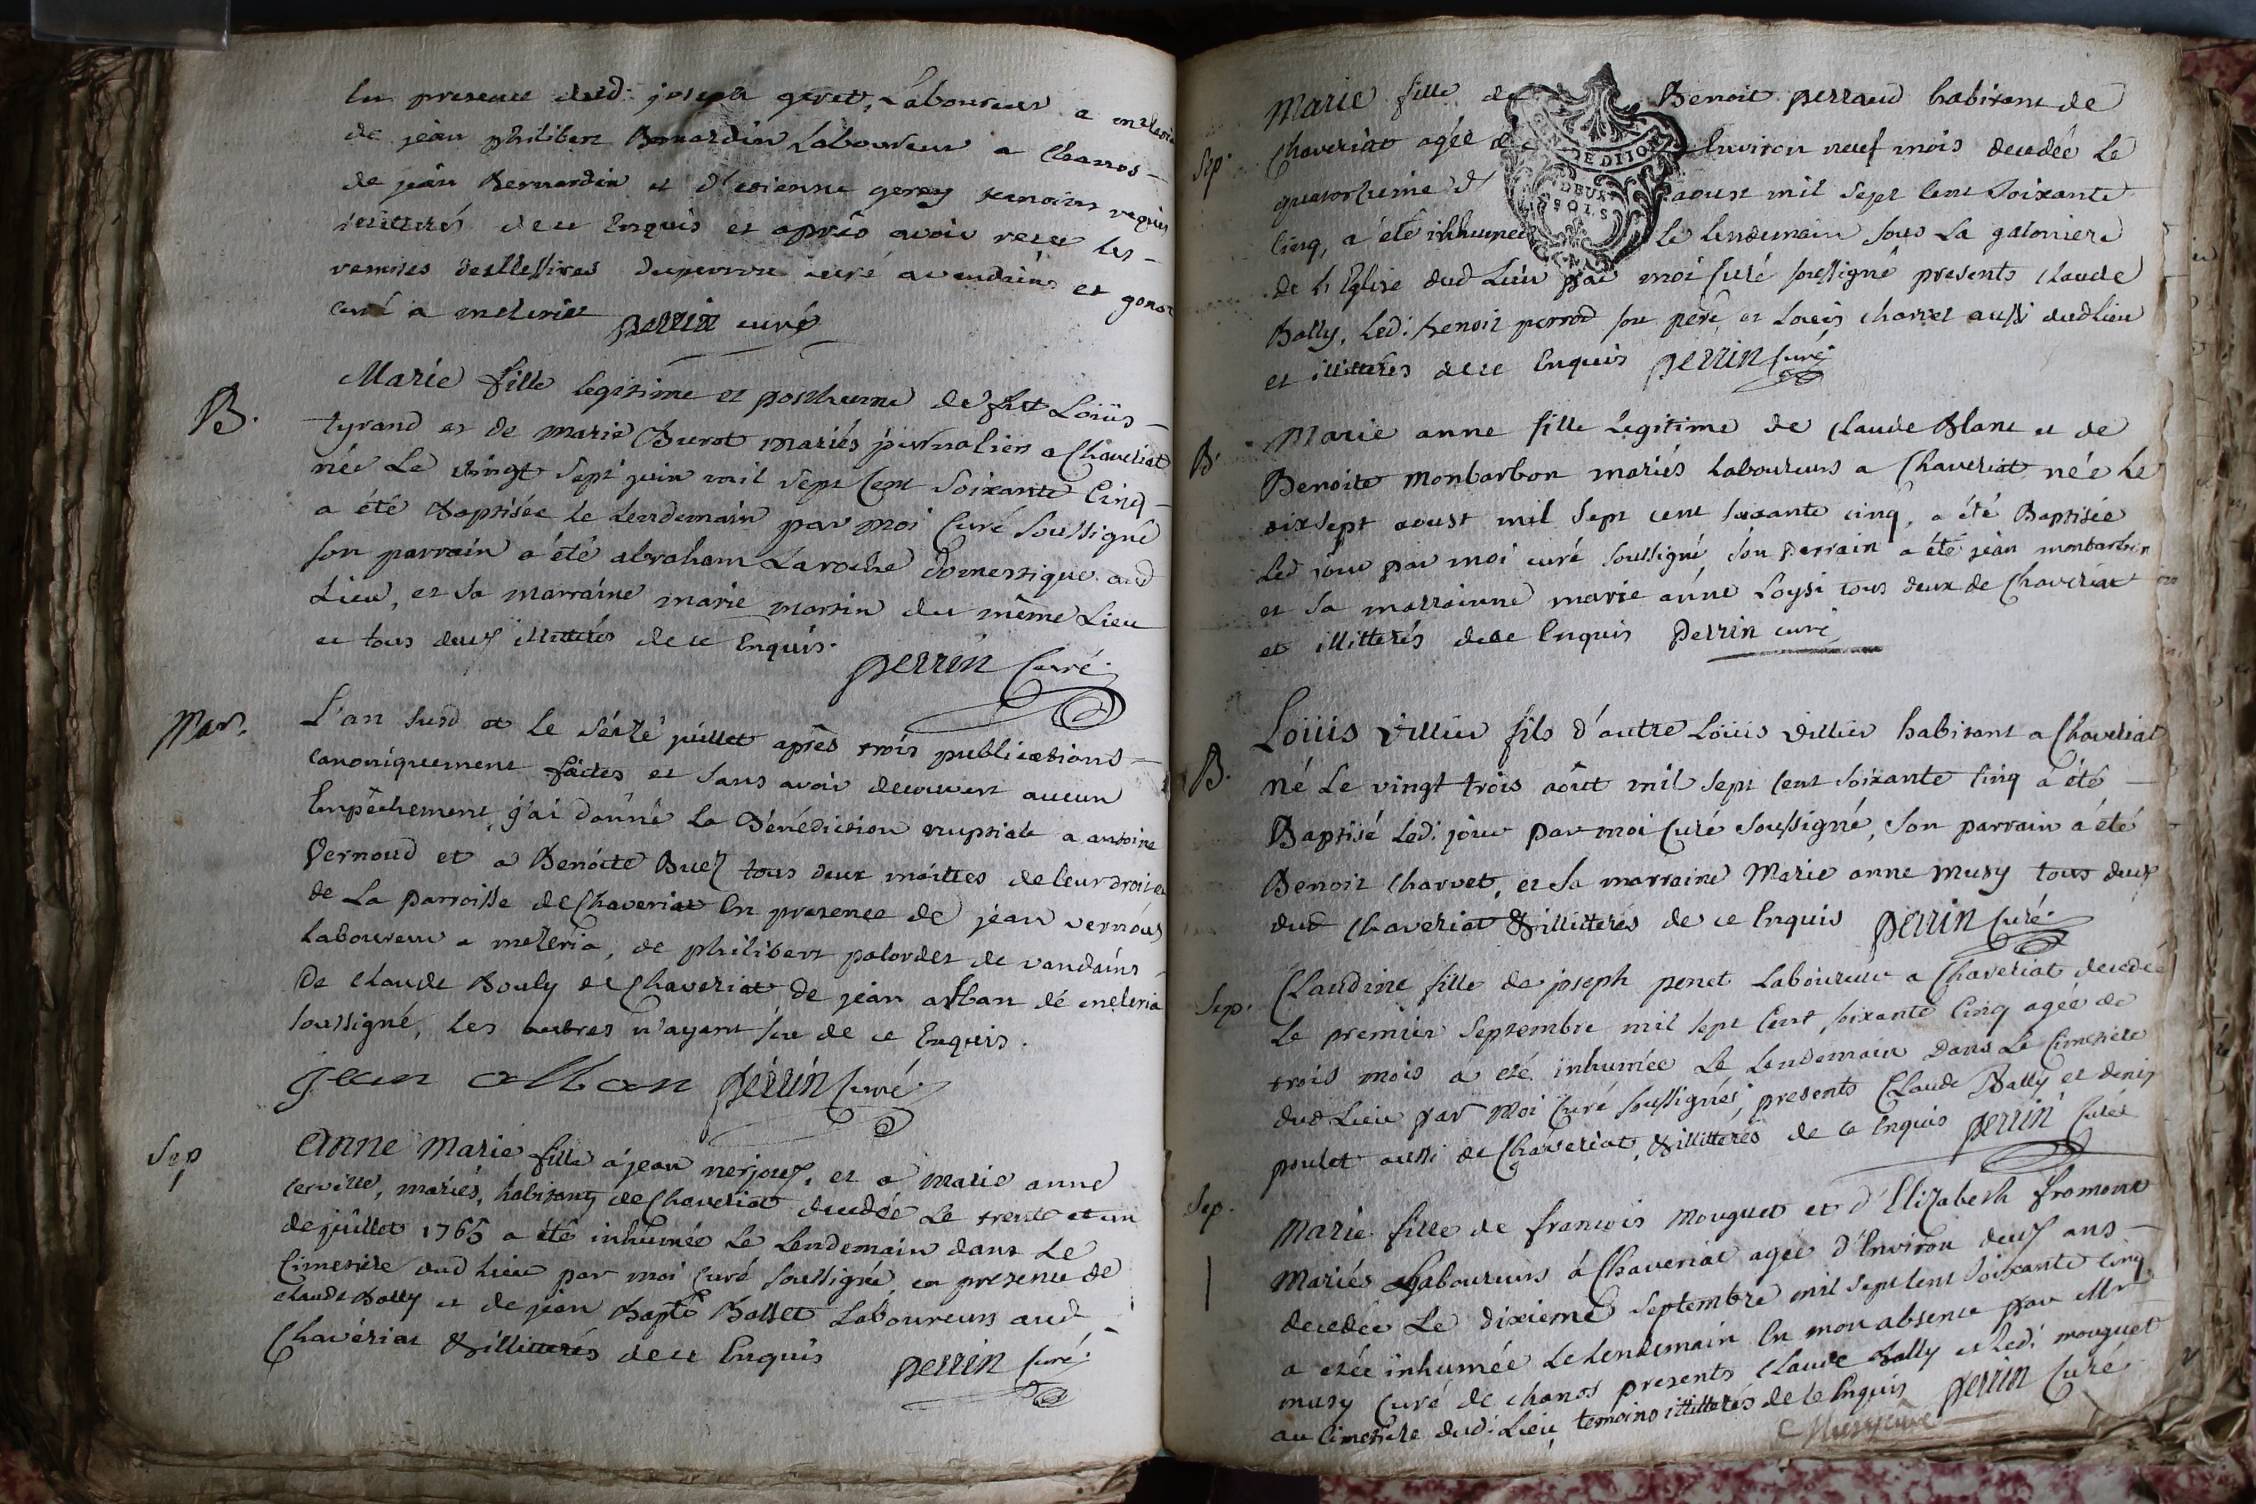 En presence dud: joseph geret, Laboureur a
de jean philibert Bernardin Laboureur a Chanos
de jean Bernardin et d'etienne gerey temoins requis
illitterés de ce Enquis et après avoir receu les
remises
curé a meleriat perrin curé
B.
Marie fille legitime et posthume de fût Loüis
tyrand et de marie Burot mariés journaliers a Chaveriat
née Le vingt sept juin mil sept Cent Soixante Cinq
a été Baptisée le Lendemain par moi Curé Soussigné
son parrain a été abraham Laroche domestique aud
Lieu, et sa marraine marie martin du même Lieu
et tous deux illitterés de ce Enquis.
perrin Curé
Mar.
L'an susd et le séizé juillet après trois publications
canoniquement faites et sans avoir decouvert aucun
Empêchement j'ai donné La Bénédiction nuptiale a antoine
Vernoud et a Benoite Buez tous deux maittes de leur droit et
de La parroisse de Chaveriat En presence de jean vernoud
Laboureur a meleria, de philibert palordet de vandains
De Claude Bouly de Chaveriat, de jean alban de meleria
soussigné, les autres n'ayant seu de ce Enquis.
jean alban perrin Curé
Sep
Anne Marie fille a jean nerjoux, et a Marie anne
Cerville, mariés, habitants de Chaveriat decedée Le trente et un
de juillet 1765 a été inhumée Le Lendemain dans Le
Cimetiere dud Lieu par moi Curé soussigné en presence de
Claude Bally et de jean Bapte Ballet Laboureurs aud
Chaveriat & illitterés de ce Enquis
perrin Curé
Marie fille de Benoit perraud habitant de
Sep.
Chaveriat agée d'Environ neuf mois decedée Le
quatorzieme d'aoust mil sept Cent Soixante
Cinq, a été inhumée le Lendemain sous La galonniere
DEUX
SOLS
de l'Eglise dud Lieu par moi Curé soussigné presents Claude
Bally, Led: benoit perrod son pere et Loüis charvet aussi dud Lieu
et illitterés de ce Enquis perrin Curé
B.
Marie anne fille Legitime de Claude Blanc et de
Benoite monbarbon mariés Laboureurs a Chaveriat née Le
dixsept aoust mil Sept cent soixante cinq, a été Baptisée
Led jour par moi curé soussigné, son parrain a été jean monbarbon
et sa marrainne marie anne Loysi tous deux de Chaveriat
et illitterés de ce Enquis perrin curé
B.
Loüis Villier fils d'autre Loüis Villier habitant a Chaveriat
né Le vingt trois août mil Sept Cent soixante Cinq a été
Baptisé Led: jour par moi Curé Soussigné, Son parrain a été
Benoit Charvet, et Sa marraine Marie anne musy tous deux
dud Chaveriat & illitterés de ce Enquis perrin Curé
Sep.
Claudine fille de joseph penet Laboureur a Chaveriat decedée
Le premier Septembre mil Sept Cent soixante Cinq agée de
trois mois a eté inhumée Le Lendemain Dans Le Cimetiere
dud Lieu par Moi Curé soussigné, presents Claude Bally et denis
poulet aussi de Chaveriat, & illitterés de ce Enquis perrin Curé
Sep.
Marie fille de francois Mouguet et d'Elizabeth fromont
Mariés Laboureurs à Chaveriat agee d'Environ deux ans
decedée Le dixieme Septembre mil Sept Cent Soixante Cinq
a etée inhumée Le Lendemain En mon absence par Mr
musy Curé de chanos presents Claude Bally et Led: mouguet
au Cimetiere dud: Lieu temoins illitterés de ce Enquis perrin Curé
Musy curé